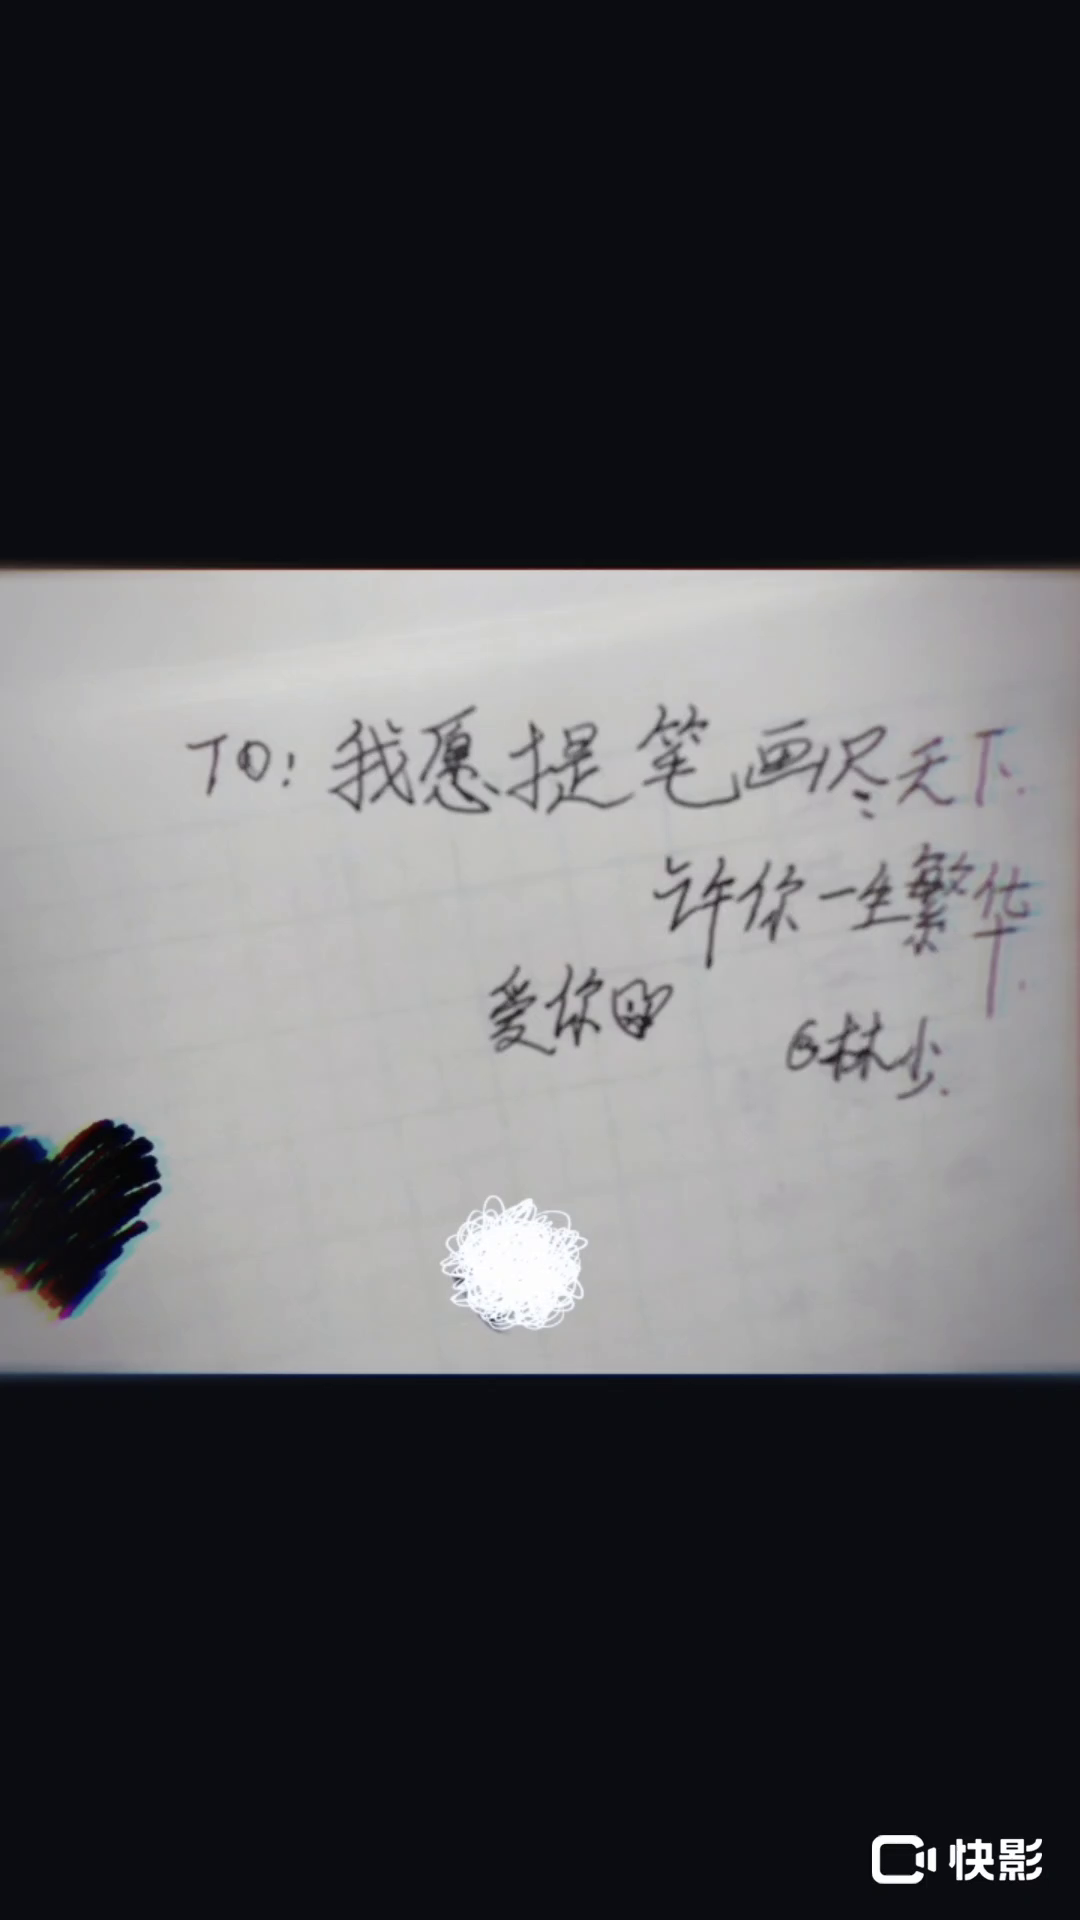 TO：我愿提笔画尽天下.
许你一生繁华.
爱你
@林少.
快影